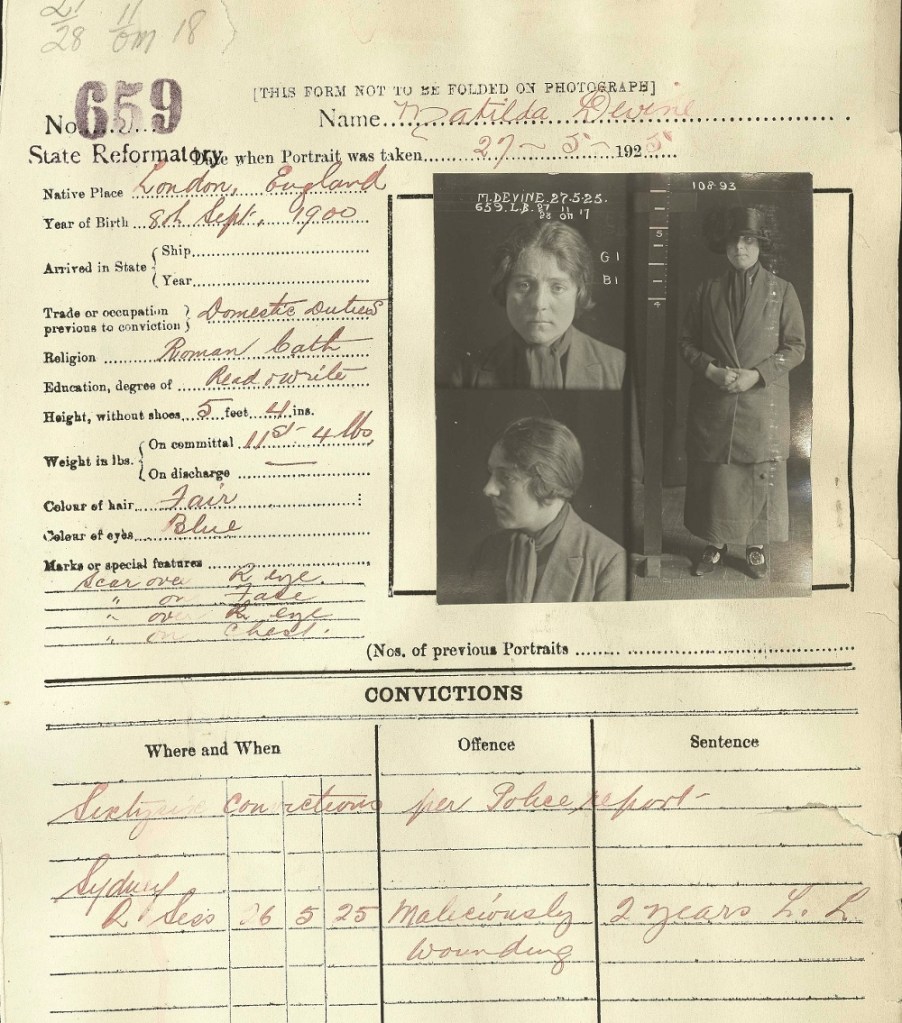 28 18
659
[THIS FORM NOT TO BE FOLDED ON PHOTOGRAPH]
No.
Name Matilda Devine
State Reformatory
Date when Portrait was taken 27 - 5 - 1925
Native Place London, England
Year of Birth 8th Sept. 1900
Arrived in State { Ship
Year
Trade or occupation previous to conviction } Domestic Duties
Religion Roman Cath
Education, degree of Read & write
Height, without shoes 5 feet 4 ins.
Weight in lbs. { On committal 11st- 4 lbs
On discharge —
Colour of hair Fair
Colour of eyes Blue
Marks or special features
Scar over R eye.
" on Face
" over R eye
" on Chest.
M. DEVINE. 27.5.25.
659. L.B.
G1
B1
10893
5
4
(Nos. of previous Portraits
CONVICTIONS
Where and When Offence Sentence
convictions per Police report-
Sydney
Q Sess 26 5 25 Maliciously 2 years L. L.
wounding